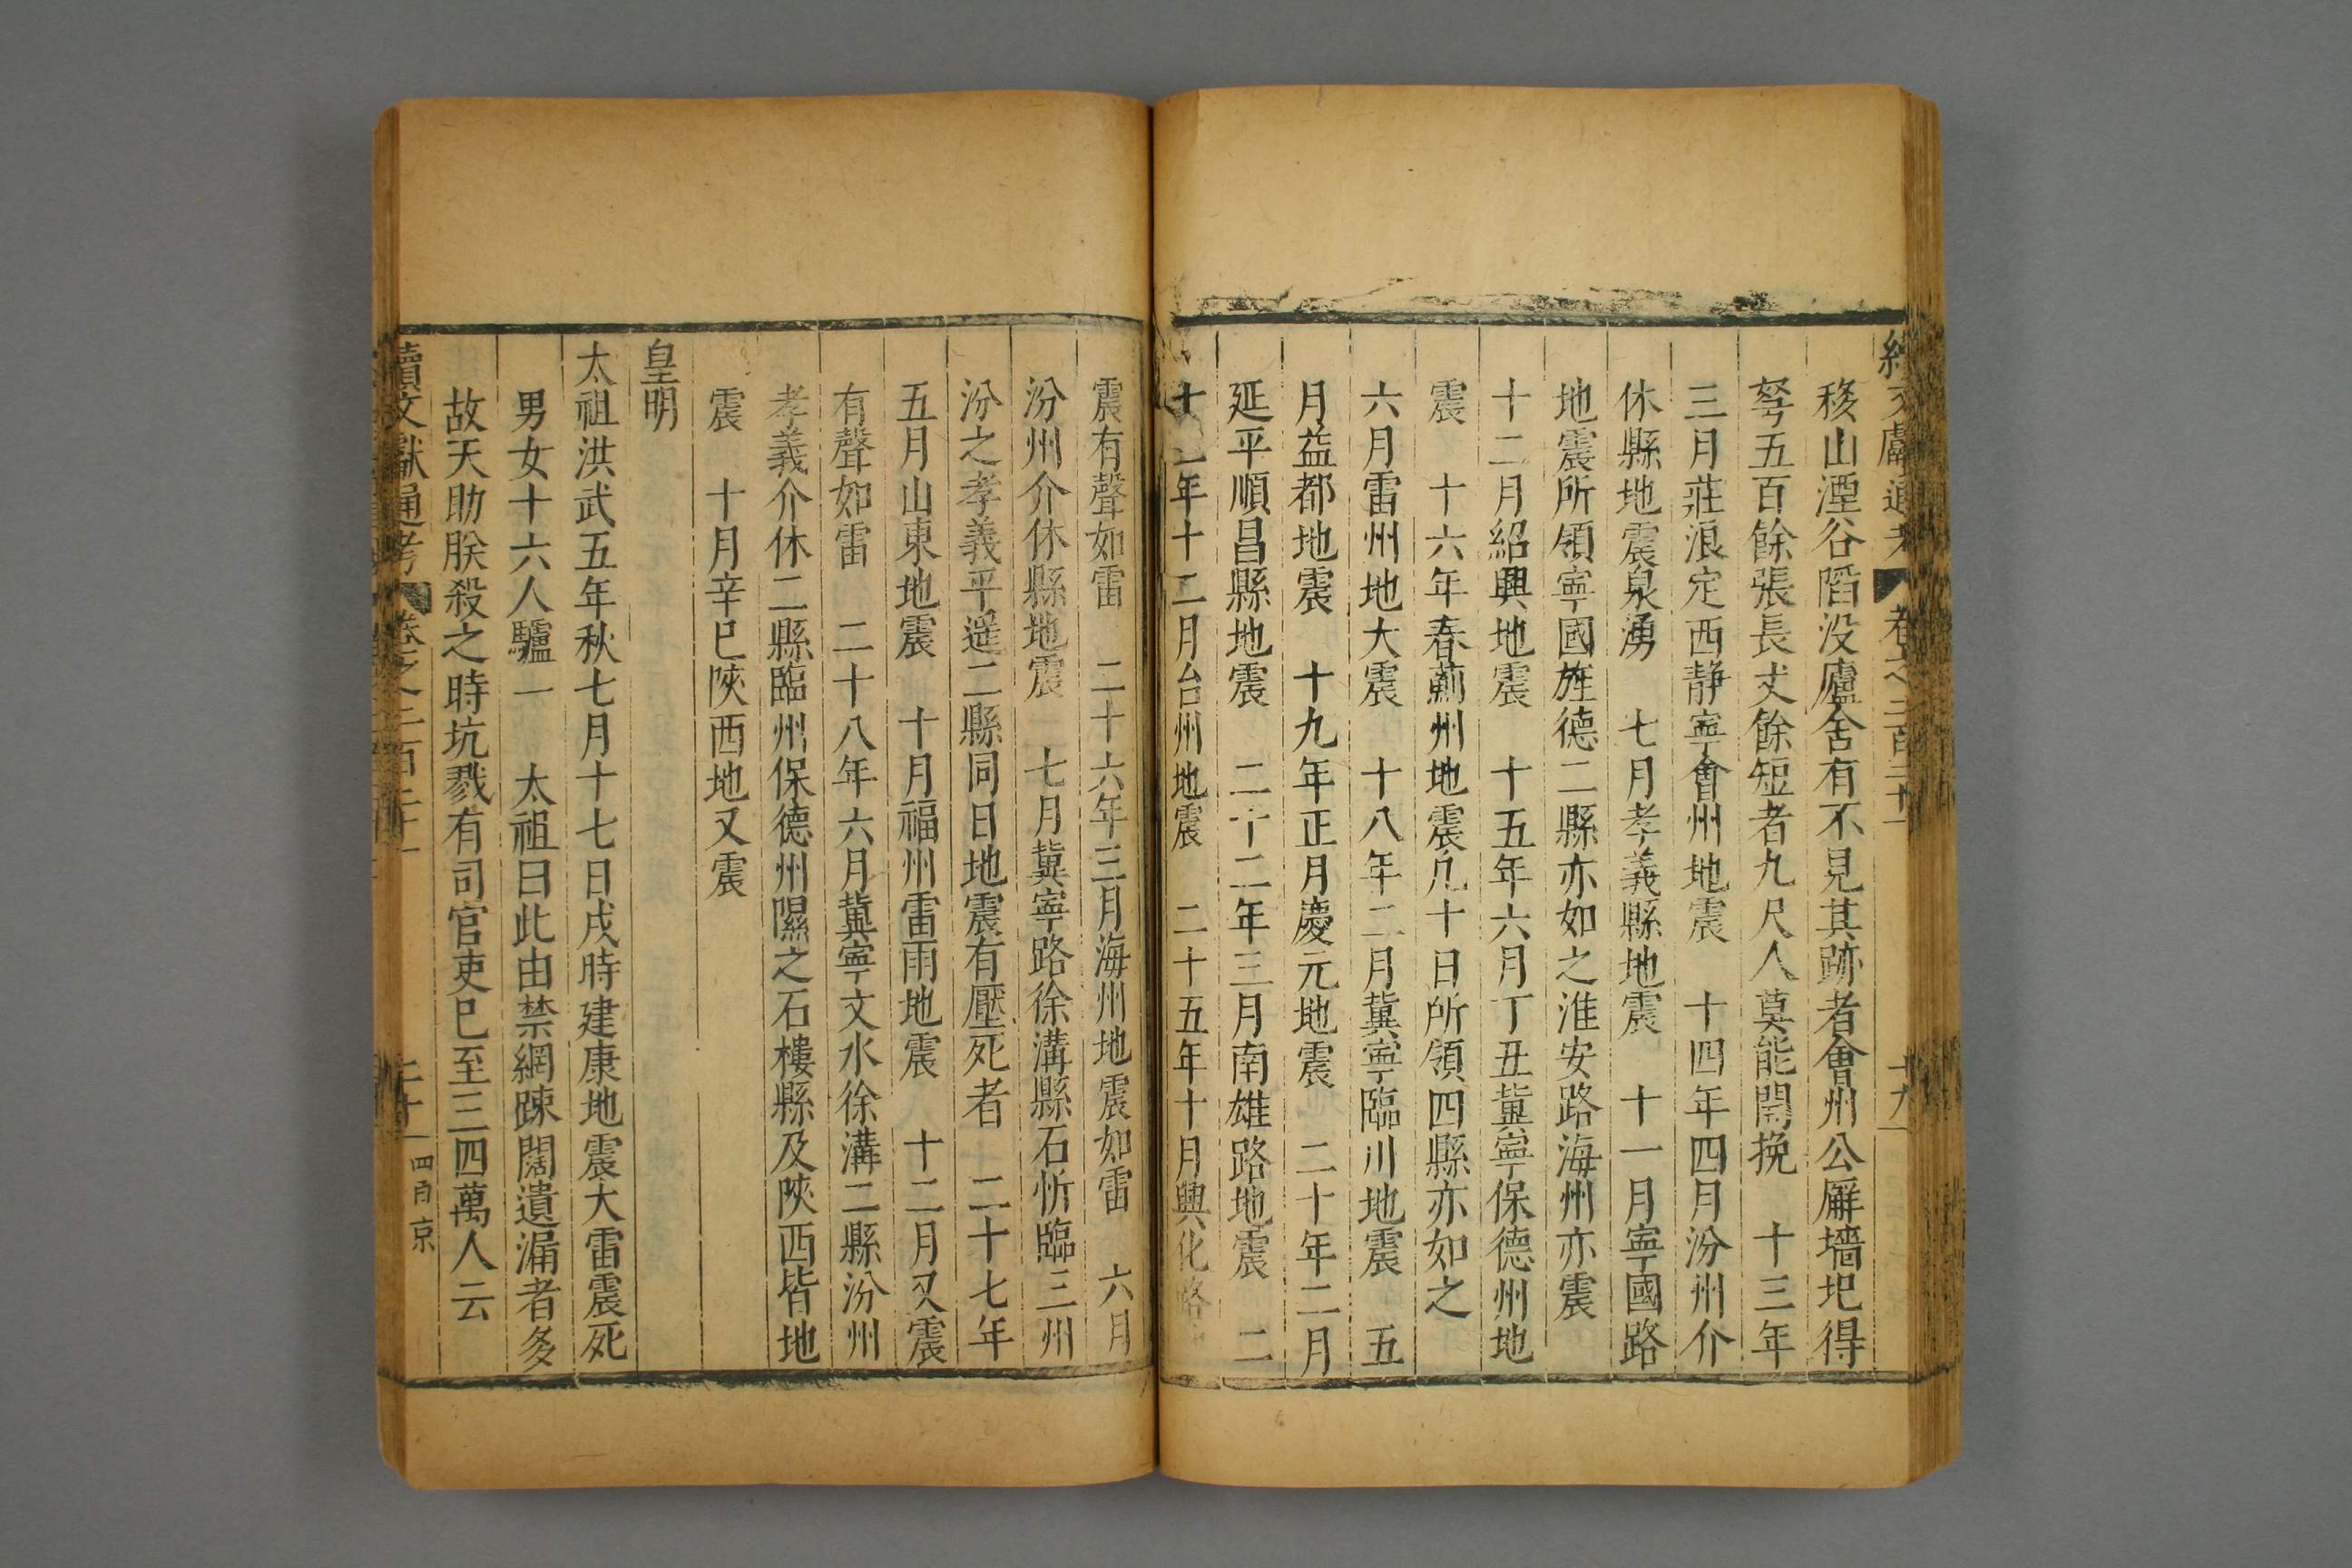 續文獻通考 卷之二百二十一 十九
移山湮谷陷没廬舍有不見其跡者會州公廨墻圯得
弩五百餘張長丈餘短者九尺人莫能開挽 十三年
三月莊浪定西静寧會州地震 十四年四月汾州介
休縣地震泉湧 七月孝義縣地震 十一月寧國路
地震所領寧國旌德二縣亦如之淮安路海州亦震
十二月紹興地震 十五年六月丁丑冀寧保德州地
震 十六年春薊州地震凡十日所領四縣亦如之
六月雷州地大震 十八年二月冀寧臨川地震 五
月益都地震 十九年正月慶元地震 二十年二月
延平順昌縣地震 二十二年三月南雄路地震 二
十 年十二月台州地震 二十五年十月興化路
震有聲如雷 二十六年三月海州地震如雷 六月
汾州介休縣地震 七月冀寧路徐溝縣石忻臨三州
汾之孝義平遥二縣同日地震有壓死者 二十七年
五月山東地震 十月福州雷雨地震 十二月又震
有聲如雷 二十八年六月冀寧文水徐溝二縣汾州
孝義介休二縣臨州保德州隰之石樓縣及陝西皆地
震 十月辛巳陝西地又震
皇明
太祖洪武五年秋七月十七日戌時建康地震大雷震死
男女十六人驢一 太祖曰此由禁網踈闊遺漏者多
故天助朕殺之時坑戮有司官吏巳至三四萬人云
續文獻通考 卷之二百二十一 二十 四百 京